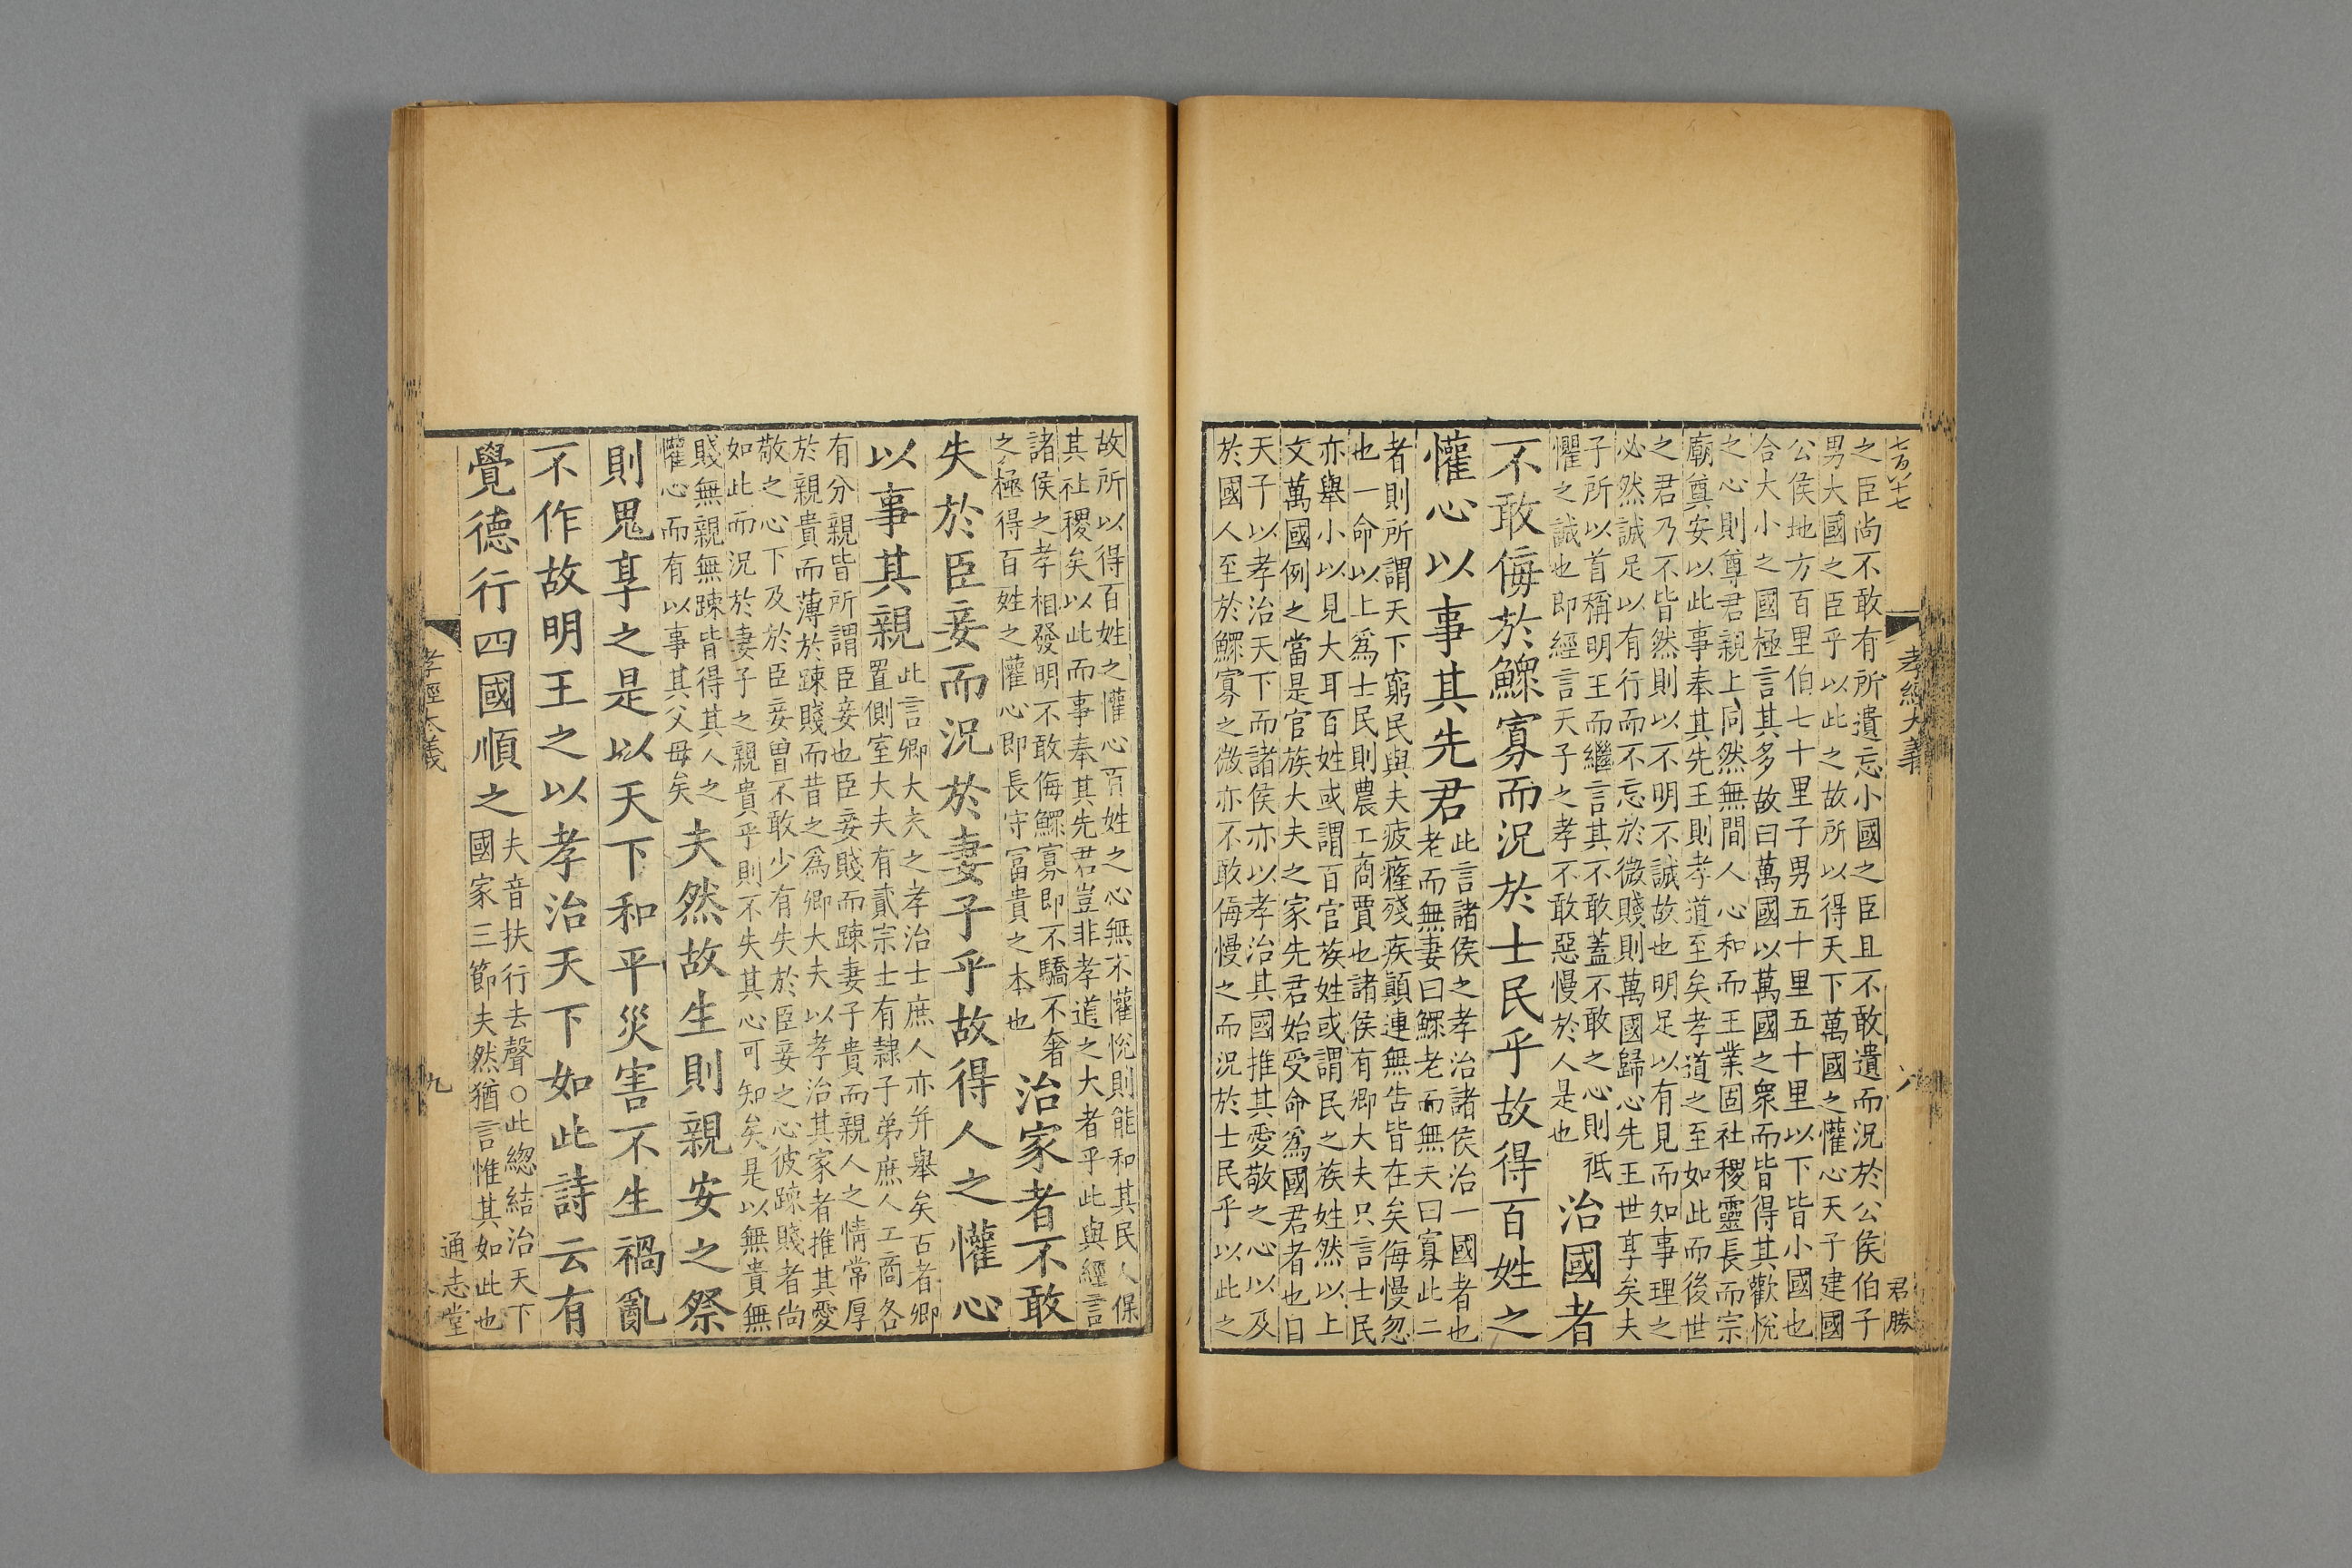 七百八十七
孝經大義
八
君勝
之臣尚不敢有所遺忘小國之臣且不敢遺而況於公侯伯子
男大國之臣乎以此之故所以得天下萬國之懽心天子建國
公侯地方百里伯七十里子男五十里五十里以下皆小國也
合大小之國極言其多故曰萬國以萬國之衆而皆得其歡悅
之心則尊君親上同然無間人心和而王業固社稷靈長而宗
廟奠安以此事奉其先王則孝道至矣孝道之至如此而後世
之君乃不皆然則以不明不誠故也明足以有見而知事理之
必然誠足以有行而不忘於微賤則萬國歸心先王世享矣夫
子所以首稱明王而繼言其不敢蓋不敢之心則祗
懼之誠也即經言天子之孝不敢惡慢於人是也
治國者
不敢侮於鰥寡而況於士民乎故得百姓之
懽心以事其先君
此言諸侯之孝治諸侯治一國者也
老而無妻曰鰥老而無夫曰寡此二
者則所謂天下窮民與夫疲癃殘疾顚連無告皆在矣侮慢忽
也一命以上爲士民則農工商賈也諸侯有卿大夫只言士民
亦舉小以見大耳百姓或謂百官族姓或謂民之族姓然以上
文萬國例之當是官族大夫之家先君始受命爲國君者也曰
天子以孝治天下而諸侯亦以孝治其國推其愛敬之心以及
於國人至於鰥寡之微亦不敢侮慢之而況於士民乎以此之
故所以得百姓之懽心百姓之心無不懽悅則能和其民人保
其社稷矣以此而事奉其先君豈非孝道之大者乎此與經言
諸侯之孝相發明不敢侮鰥寡即不驕不奢
之極得百姓之懽心即長守富貴之本也
治家者不敢
失於臣妾而況於妻子乎故得人之懽心
以事其親
此言卿大夫之孝治士庶人亦幷舉矣古者卿
置側室大夫有貳宗士有隸子弟庶人工商各
有分親皆所謂臣妾也臣妾賤而踈妻子貴而親人之情常厚
於親貴而薄於踈賤而昔之爲卿大夫以孝治其家者推其愛
敬之心下及於臣妾曾不敢少有失於臣妾之心彼踈賤者尚
如此而況於妻子之親貴乎則不失其心可知矣是以無貴無
賤無親無踈皆得其人之
懽心而有以事其父母矣
夫然故生則親安之祭
則鬼享之是以天下和平災害不生禍亂
不作故明王之以孝治天下如此詩云有
覺德行四國順之
夫音扶行去聲○此緫結治天下
國家三節夫然猶言惟其如此也
孝經大義
九
通志堂